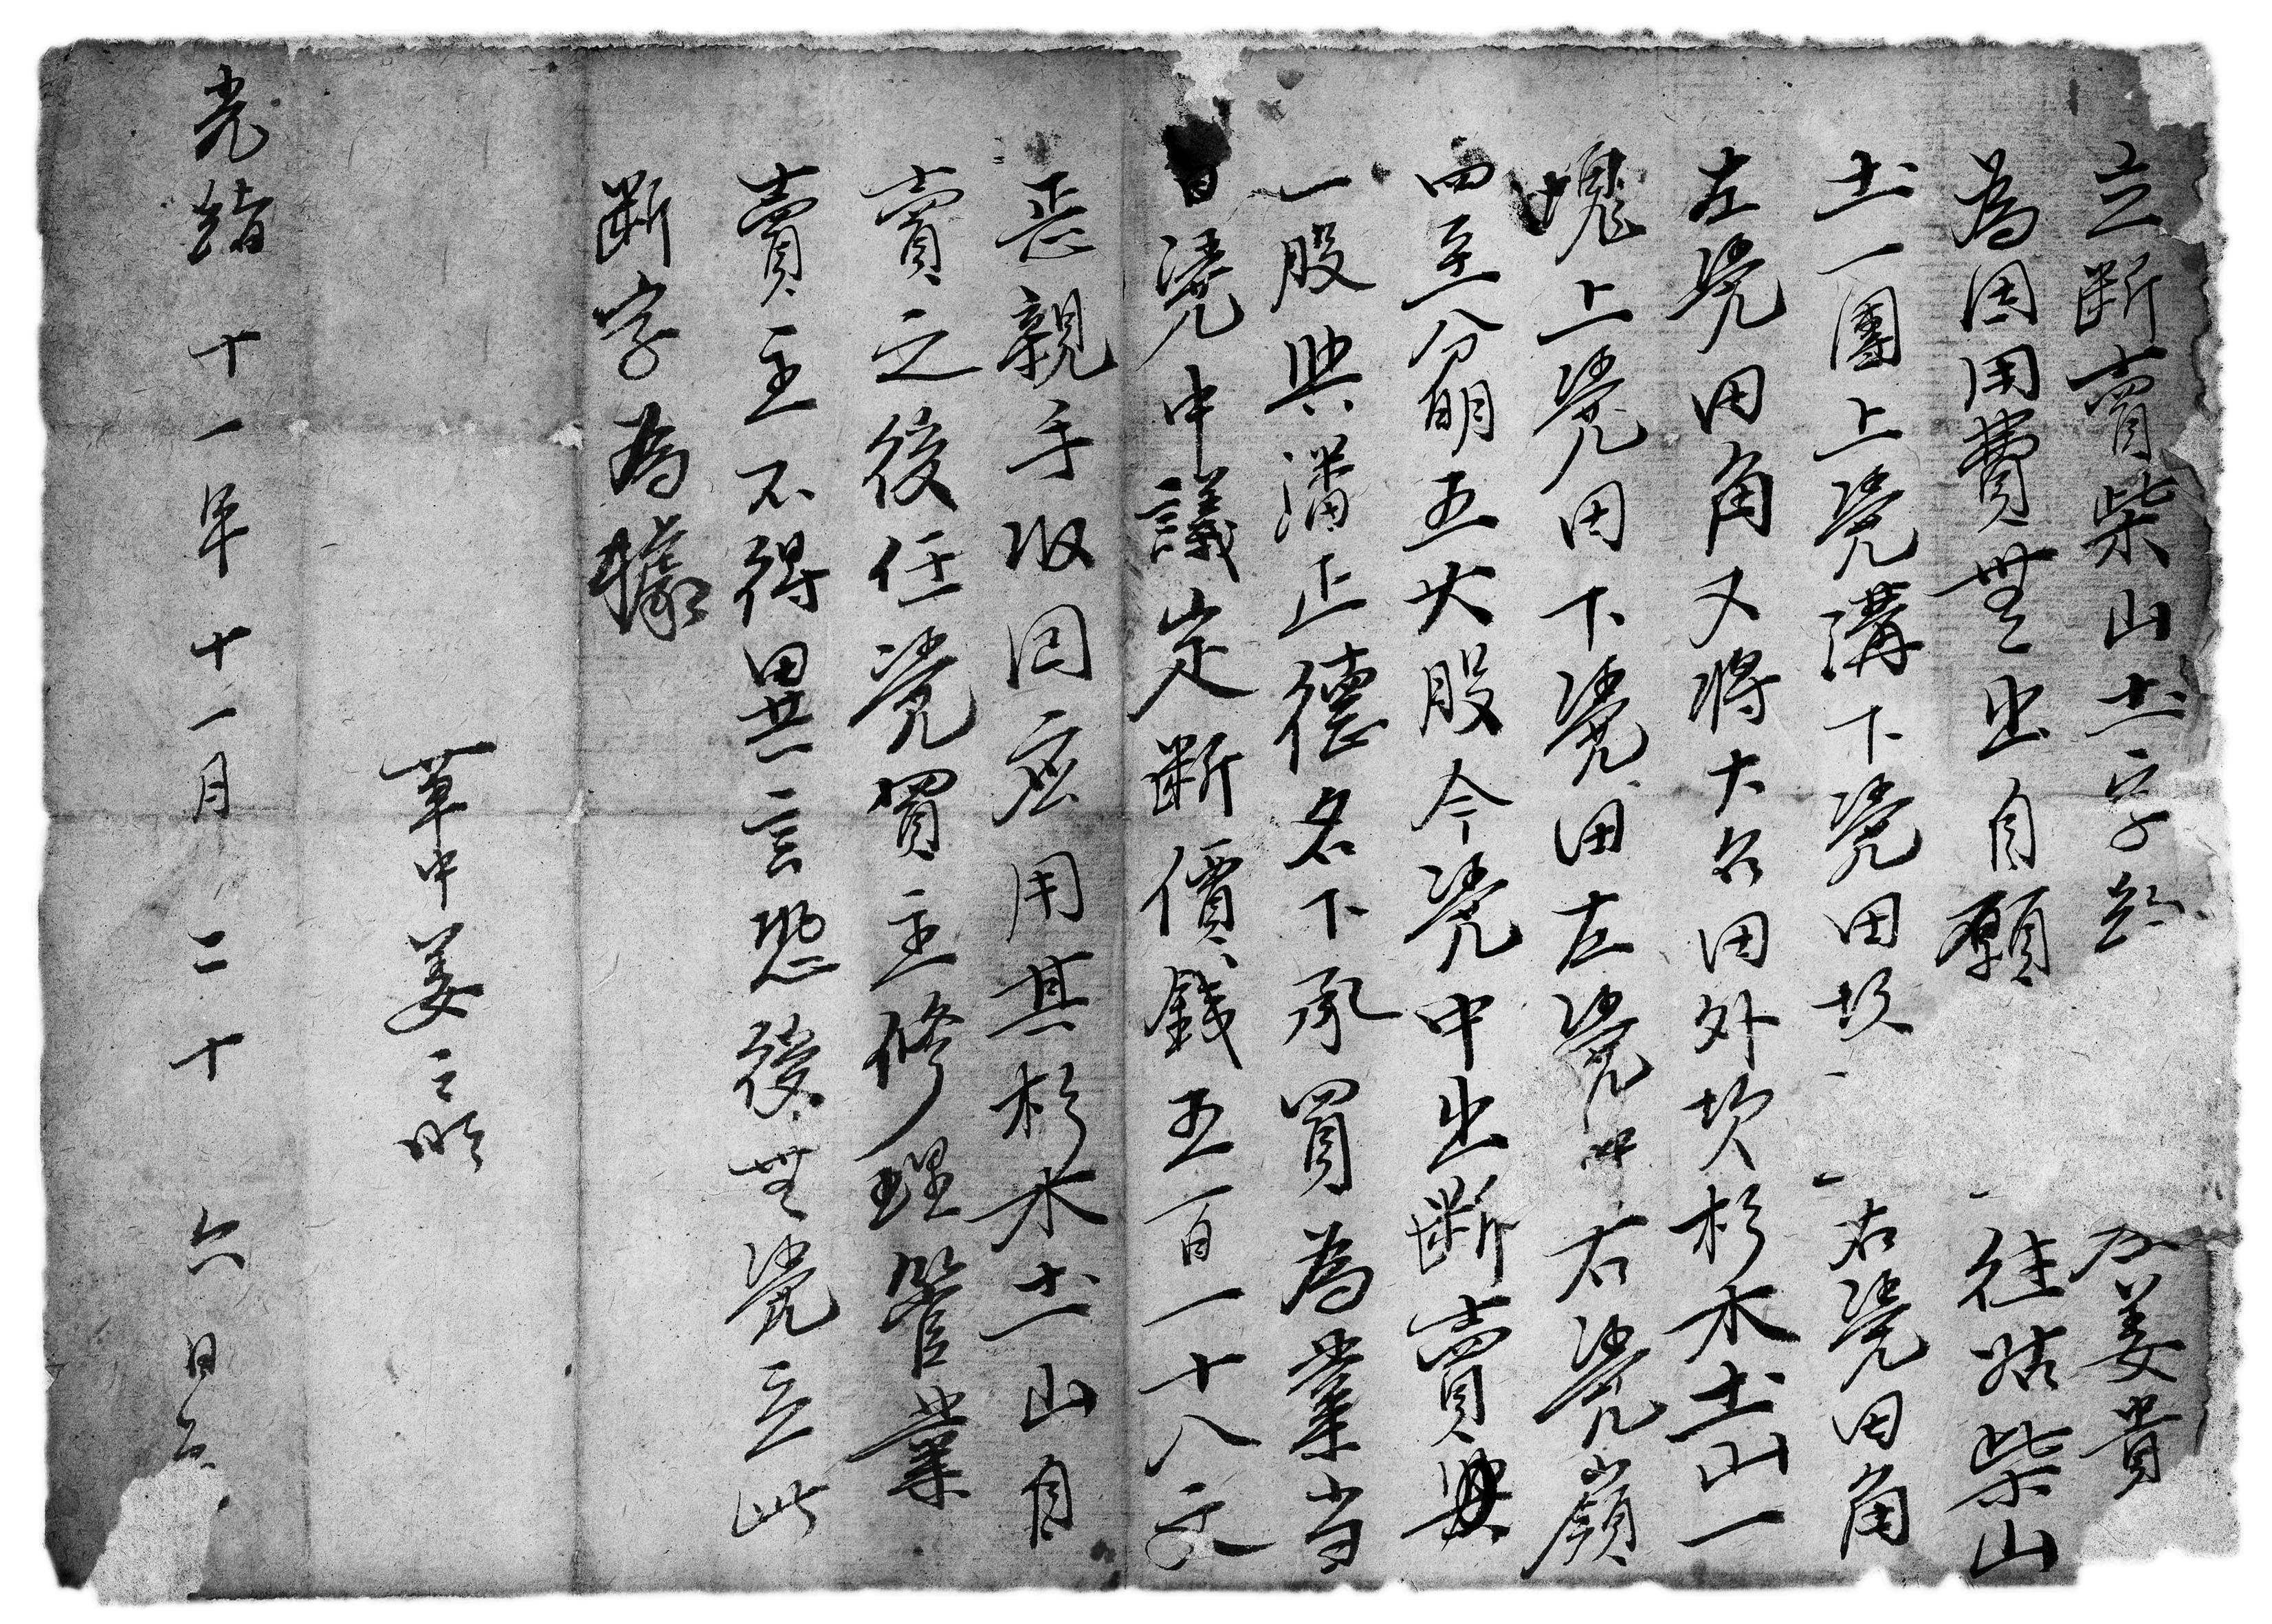 立斷賣柴山土字 姜貴
為因用費無出自願 往姑柴山
土一團上凴溝下凴田坎 右凴田角
左凴田角又將大名田外坎杉木土山一
塊上凴田下凴田左凴冲右凴嶺
四至分明五大股今凴中出斷賣與
一股與潘正德名下承買為業当
日凴中議定斷價錢五百一十八文
親手收回應用其杉木土山自
賣之後任凴買主修理管業
賣主不得異言恐後無凴立此
斷字為據
筆中姜三明
光緒十一年十一月二十六日立